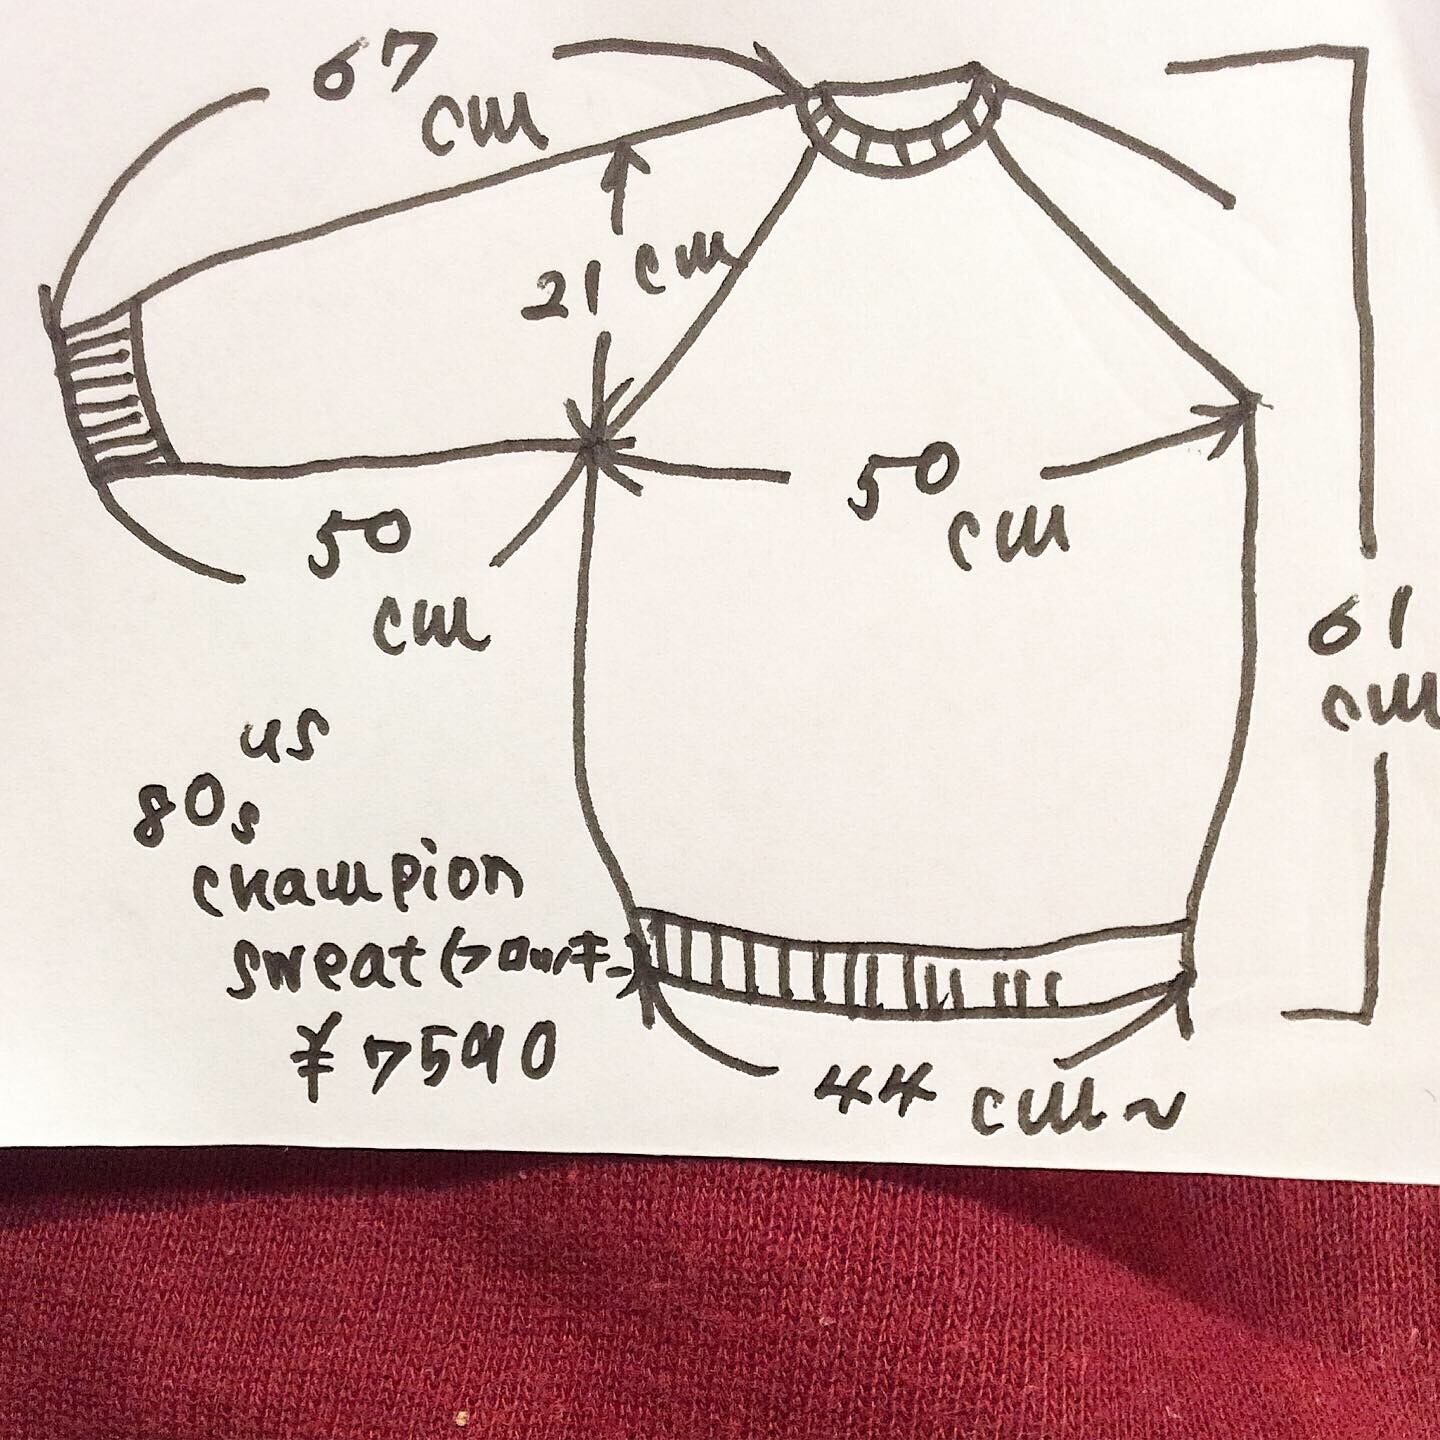 67
cm
21 cm
50
cm
50
cm
61
cm
us
80s
champion
sweat (
¥7590
44 cm~